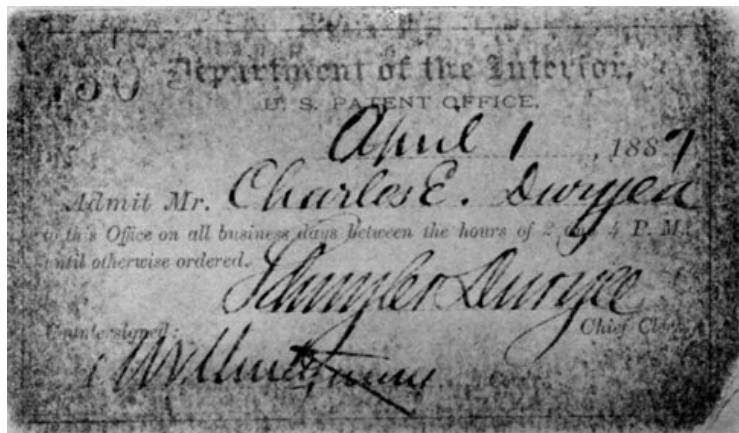 150 Department of the Interior,
U. S. PATENT OFFICE.
April 1, 1887
Admit Mr. Charles E. Duryea
to this Office on all business days between the hours of 2 and 4 P. M.
until otherwise ordered.
Schuyler Duryee
Chief Clerk.
Countersigned: